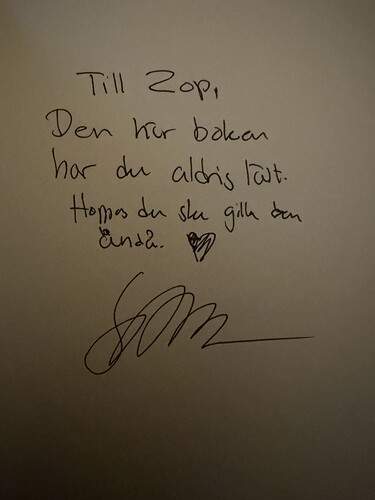 Till Zop,
Den här boken
har du aldrig läst.
Hoppas du ska gilla den
ändå. ♥